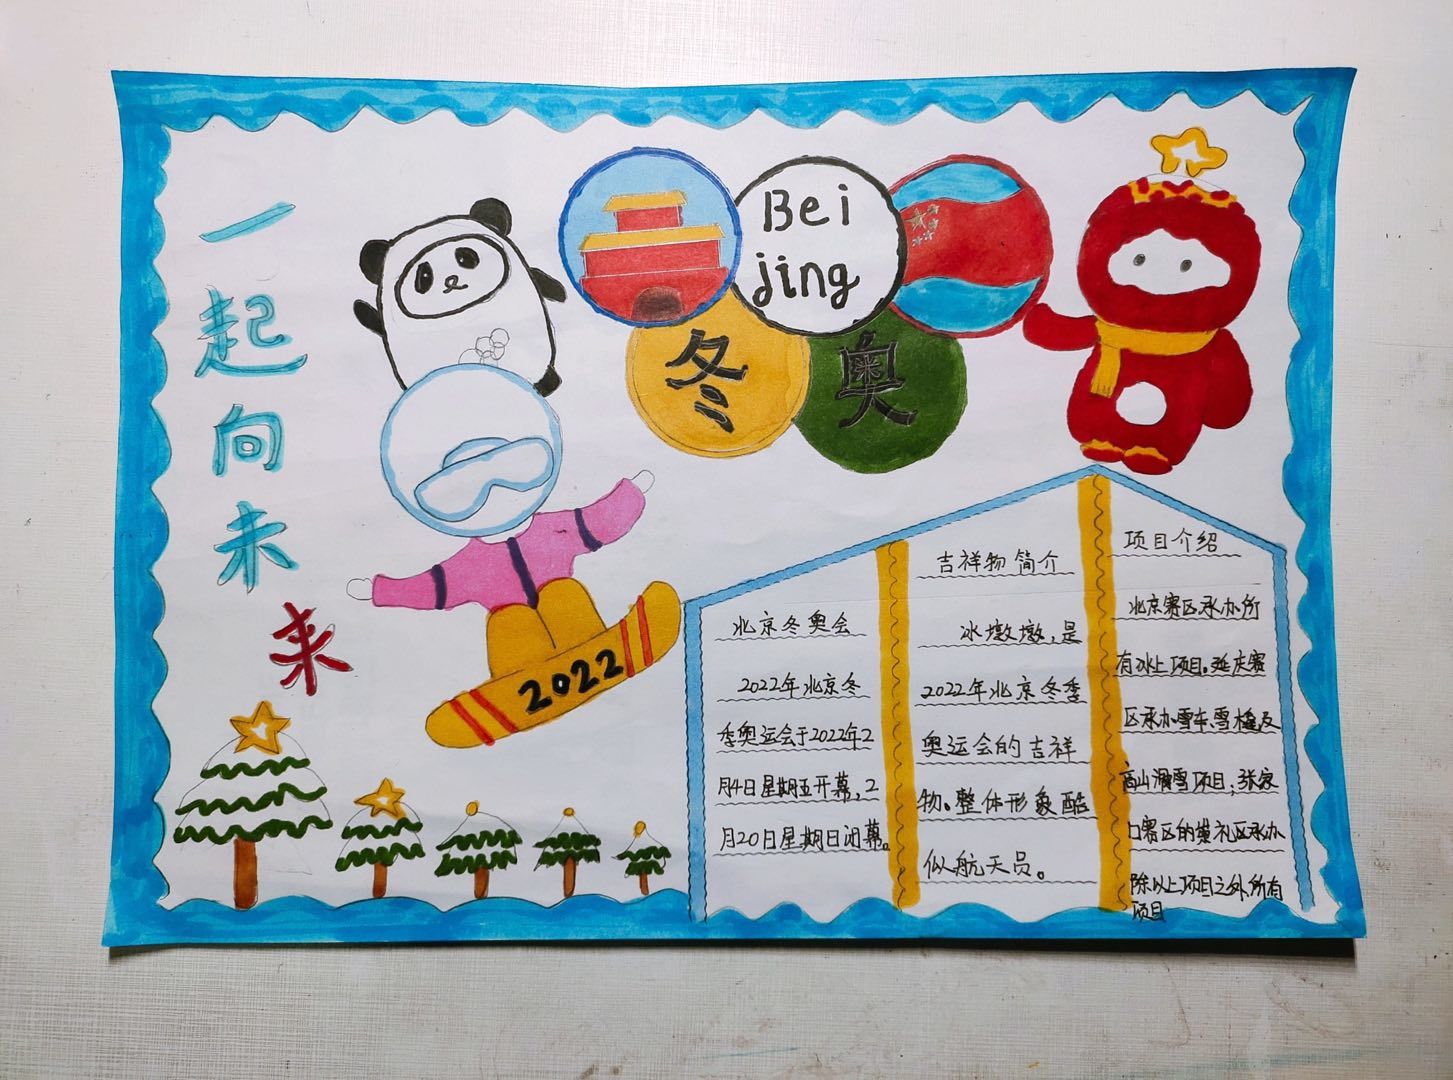 一起向未来
Bei
jing
冬奥
2022
北京冬奥会
2022年北京冬
季奥运会于2022年2
月4日星期五开幕,2
月20日星期日闭幕。
吉祥物简介
冰墩墩,是
2022年北京冬季
奥运会的吉祥
物。整体形象酷
似航天员。
项目介绍
北京赛区承办所
有冰上项目。延庆赛
区承办雪车、雪橇及
高山滑雪项目;张家
口赛区的崇礼区承办
除以上项目之外所有
项目